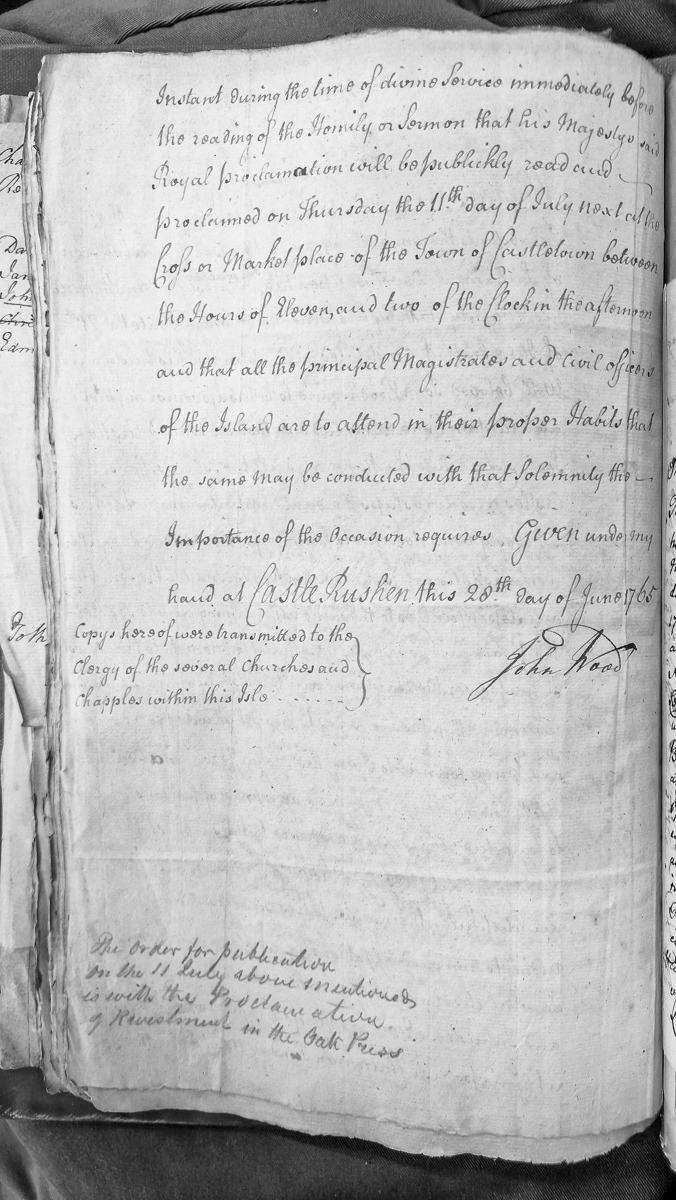 Instant during the time of divine Service immediately before
the reading of the Homily, or Sermon that his Majestys said
Royal proclamation will be publickly read and
proclaimed on Thursday the 11th day of July next at the
Cross or Market place of the Town of Castletown between
the Hours of Eleven, and two of the Clock in the afternoon
and that all the principal Magistrates and Civil officers
of the Island are to attend in their proper Habits that
the same may be conducted with that Solemnity the
Importance of the Occasion requires. Given under my
hand at Castle Rushen this 28th day of June 1765
John Wood
Copys hereof were transmitted to the
Clergy of the several Churches and
Chapples within this Isle
The order for publication
on the 11 July above mentioned
is with the Proclamation
of Revestment in the Oak Press